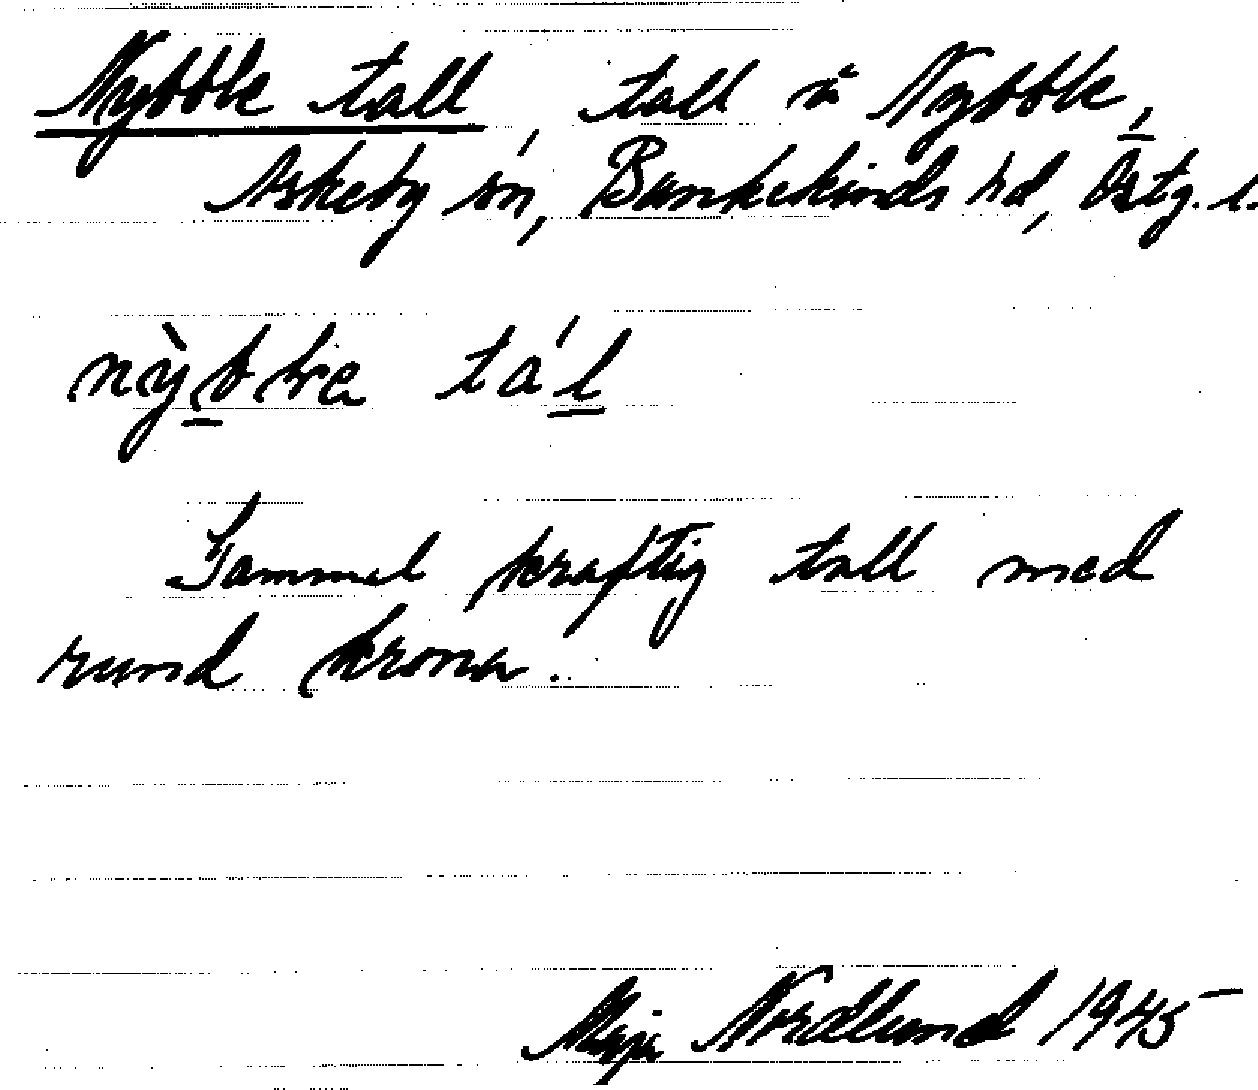 Nybble tall, tall i Nybble,
Askeby sn, Bankekinds hd, Östg. l.
nỳb̲ble tál̲
Gammal kraftig tall med
rund krona.
Maja Nordlund 1945